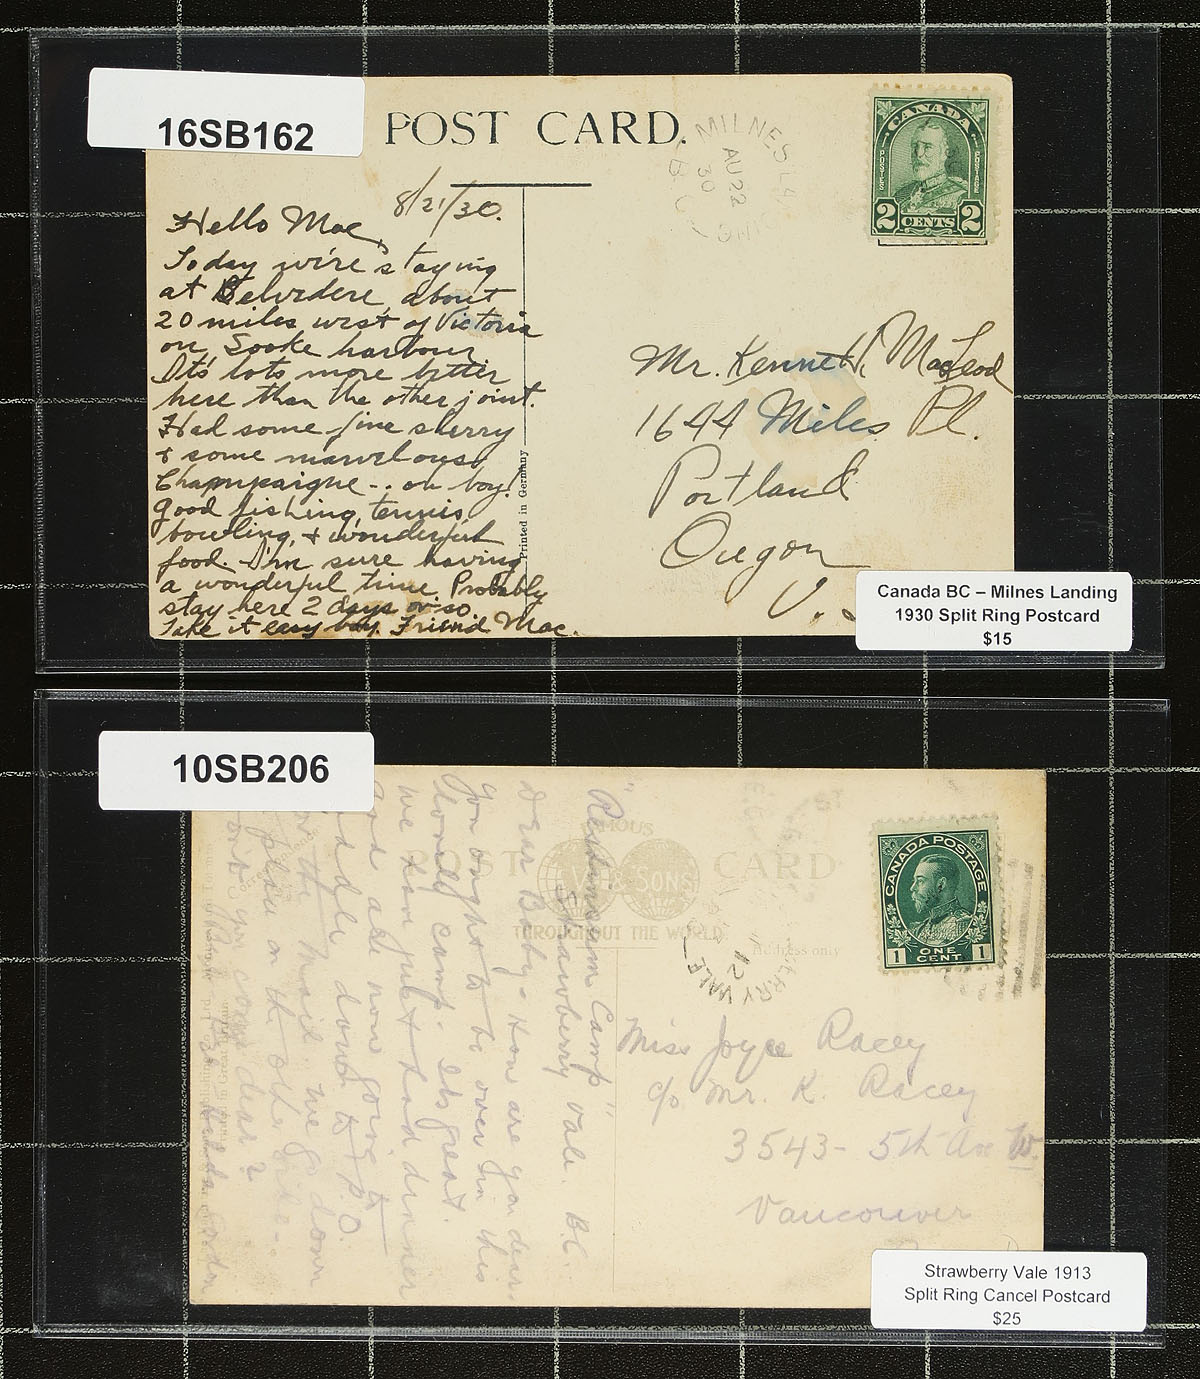 16SB162
POST CARD.
MILNES LA
AU 22
30
B.C.
CANADA
POSTES POSTAGE
2 CENTS 2
8/21/30.
Hello Mac,
Today we're staying
at Belvedere, about
20 miles west of Victoria
on Sooke harbour.
It's lots more better
here than the other joint.
Had some fine sherry
& some marvelous
Champaigne -- oh boy!
Good fishing, tennis,
bowling, & wonderful
food. I'm sure having
a wonderful time. Probably
stay here 2 days or so.
Take it easy boy. Friend Mac.
Printed in Germany
Mr. Kenneth MacLeod
1644 Miles Pl.
Portland
Oregon
U.
Canada BC – Milnes Landing
1930 Split Ring Postcard
$15
10SB206
POST CARD
FAMOUS
& SONS
THROUGHOUT THE WORLD
Address only
RRY VALE
12
CANADA POSTAGE
1 ONE CENT 1
Camp"
Strawberry Vale. B.C.
Dear Baby - How are you dear
You ought to be over in this
lovely camp. Its great.
We have just had dinner
and are now going to
down to P.O.
for the mail. We go down
on the other side..
your dear?
Miss Joyce Racey
c/o Mr. K. Racey
3543 - 5th Ave W.
Vancouver
Strawberry Vale 1913
Split Ring Cancel Postcard
$25